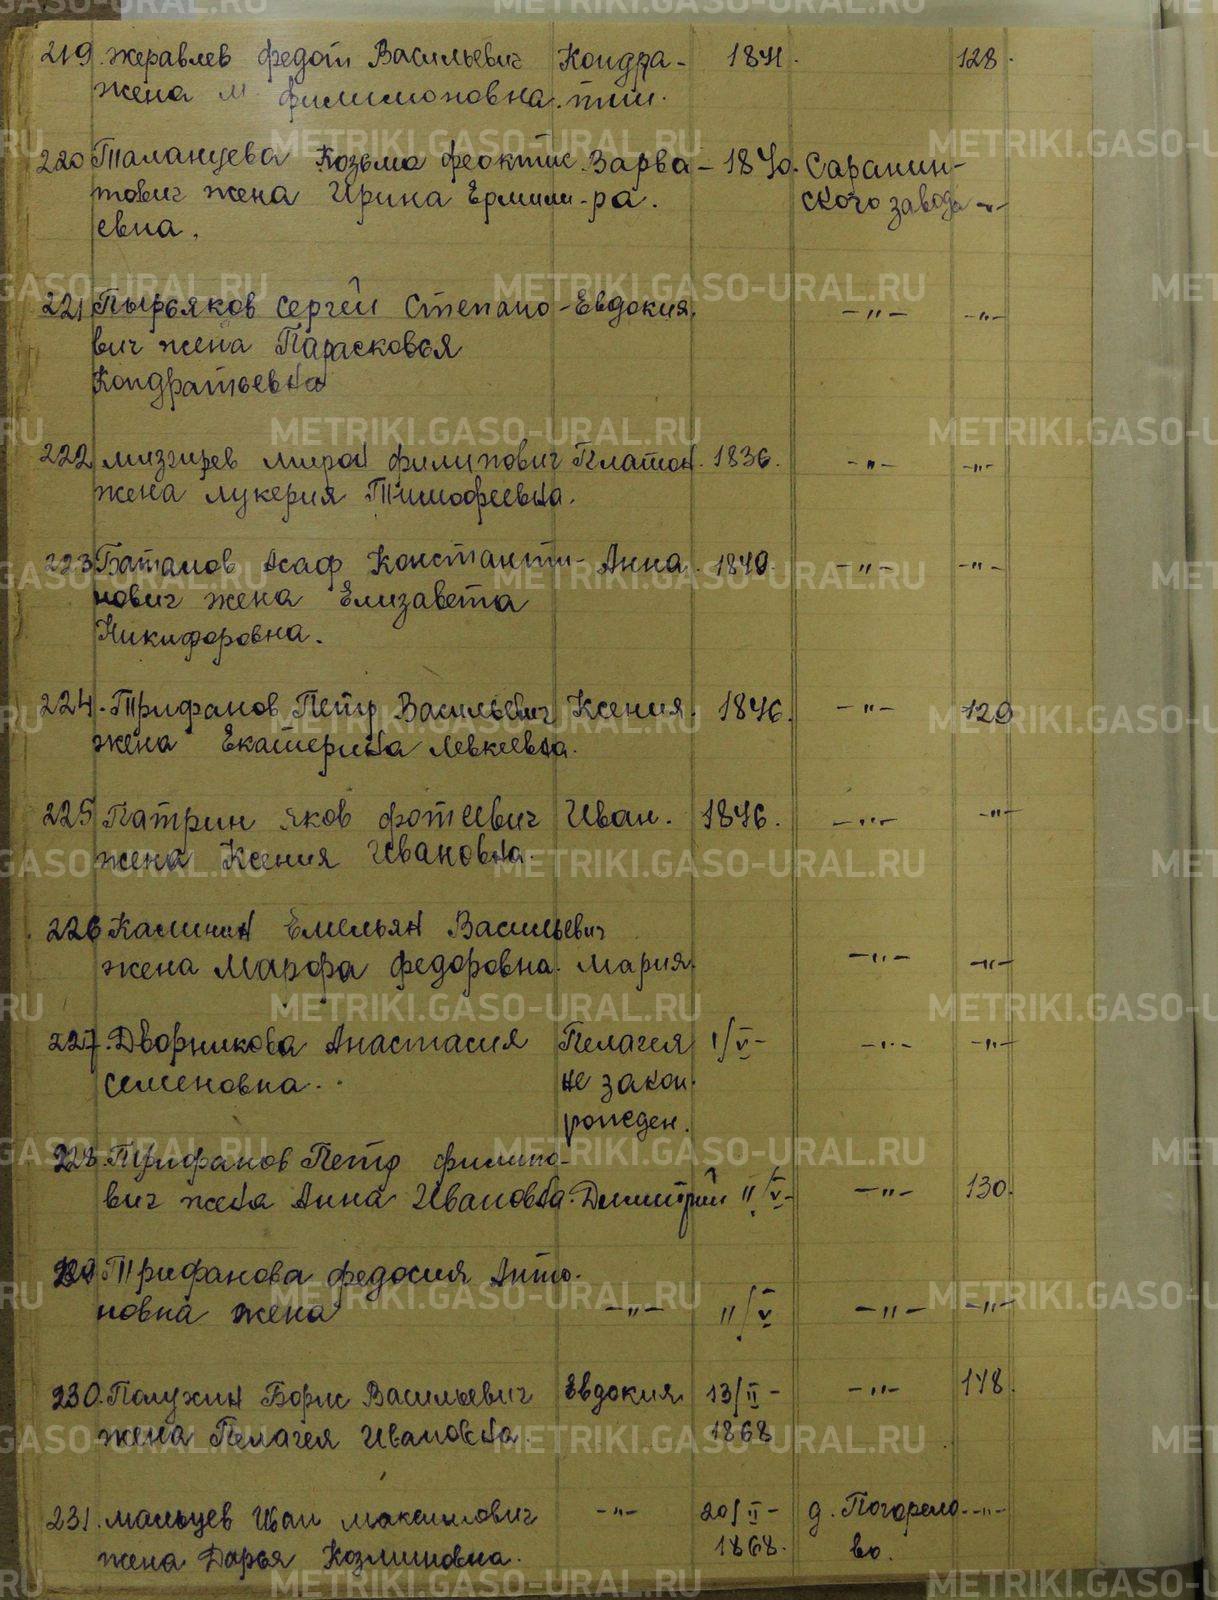 219. Жеравлев Федот Васильевич Кондра- 1841. 128.
жена М. Филимоновна. тий.
220 Таланцева Козьма Феоктис- Варва- 1840. Саранин-
тович жена Ирина Ермили- ра. ского завода -"-
евна.
221 Пырьяков Сергей Степано- Евдокия. -"- -"-
вич жена Парасковья
Кондратьевна
222 Мизгирев Мирон Филипович Платон. 1836. -"- -"-
жена Лукерия Тимофеевна.
223 Баталов Асаф Константи- Анна. 1840. -"- -"-
нович жена Елизавета
Никифоровна.
224. Трифанов Петр Васильевич Ксения. 1846. -"- 129
жена Екатерина Левкеевна.
225 Патрин Яков Фотиевич Иван. 1846. -"- -"-
жена Ксения Ивановна.
226 Калинин Емельян Васильевич
жена Марфа Федоровна. Мария. -"- -"-
227. Дворникова Анастасия Пелагея 1/V- -"- -"-
Семеновна.. не закон.
рожден.
228. Трифанов Петр Филипо-
вич жена Анна Ивановна. Димитрий 11/V- -"- 130.
229 Трифанова Федосия Анто-
новна жена -"- 11/V -"- -"-
230. Полухин Борис Васильевич Евдокия 13/II- -"- 148.
жена Пелагея Ивановна. 1868
231. Мальцев Иван Максимович -"- 20/II- д. Погорело- -"-
жена Дарья Козминовна. 1868. во.
METRIKI.GASO-URAL.RU